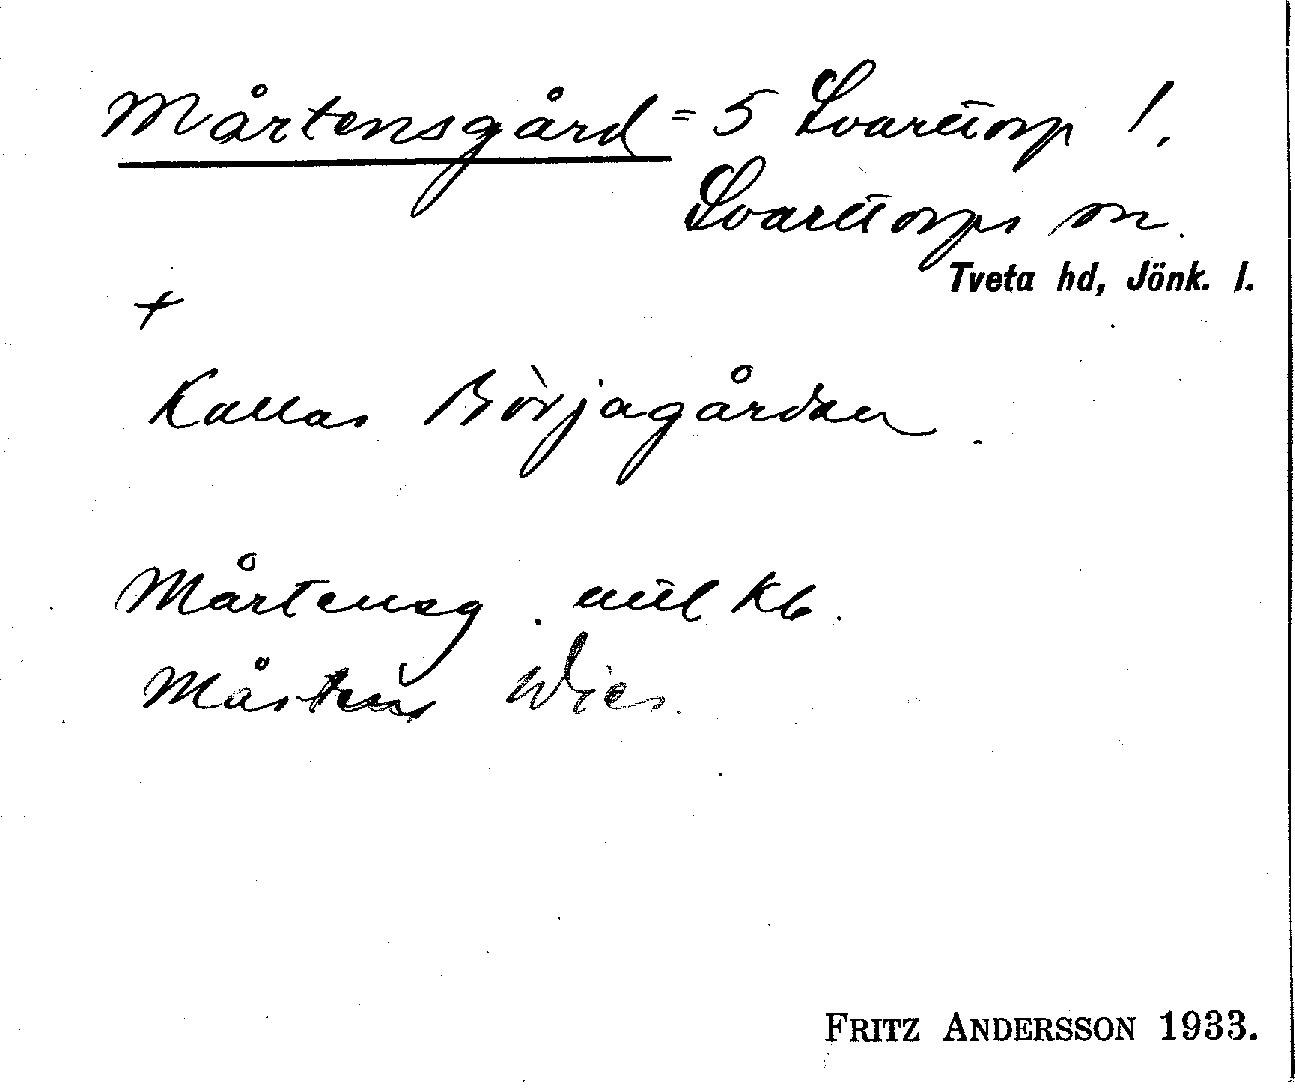 Mårtensgård = 5 Svarttorp 1.
Svarttorps sn.
Tveta hd, Jönk. l.
+
Kallas Börjagården.
Mårtensg. enl kb.
Mårtens Wies.
FRITZ ANDERSSON 1933.